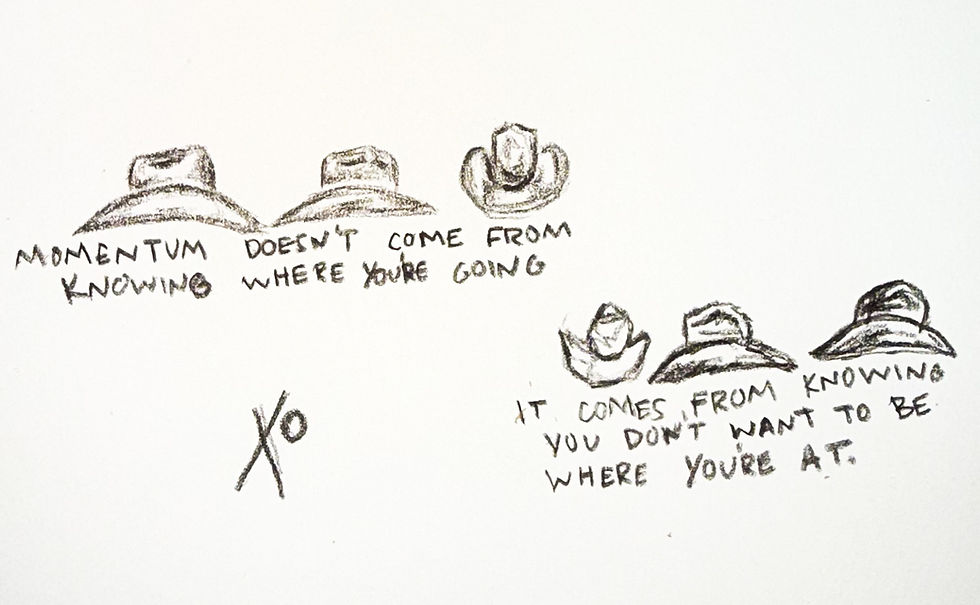 MOMENTUM DOESN'T COME FROM
KNOWING WHERE YOU'RE GOING
IT COMES FROM KNOWING
YOU DON'T WANT TO BE
WHERE YOU'RE AT.
XO